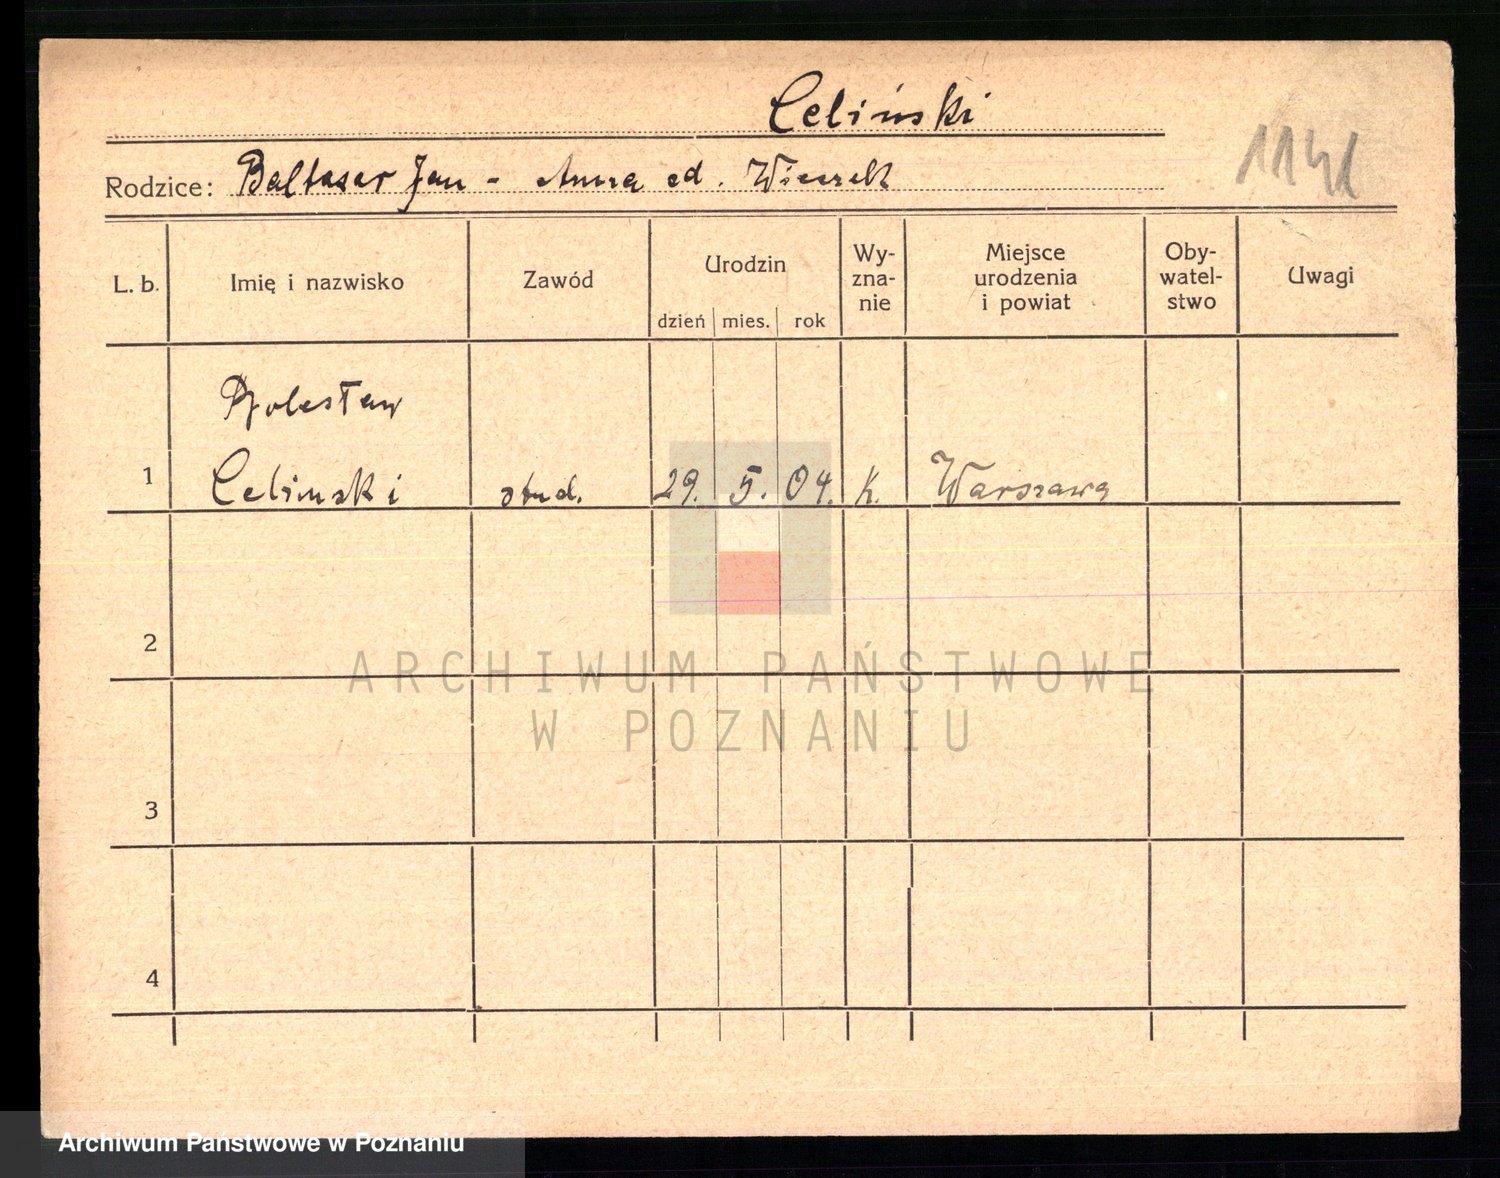 Celiński
Rodzice: Baltasar Jan - Anna cd.
1141
L. b.
Imię i nazwisko
Zawód
Urodzin
dzień mies. rok
Wy-
zna-
nie
Miejsce
urodzenia
i powiat
Oby-
watel-
stwo
Uwagi
Bolesław
1 Celinski stud. 29. 5. 04. K. Warszawa
2
3
4
ARCHIWUM PAŃSTWOWE
W POZNANIU
Archiwum Państwowe w Poznaniu